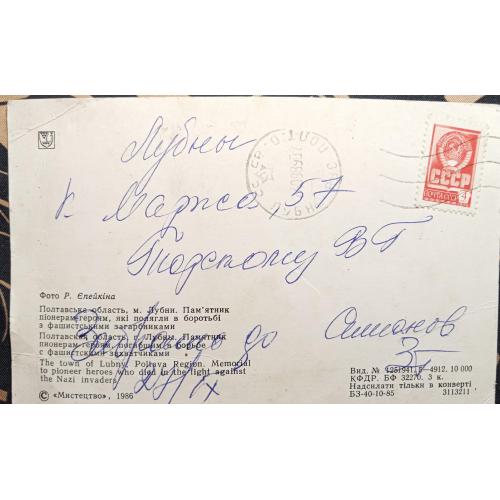 Лубны
К. Маркса, 57
СССР
ПОЧТА СССР
4
Фото Р. Єпейкіна
Полтавська область, м. Лубни. Пам'ятник
піонерам-героям, які полягли в боротьбі
з фашистськими загарбниками
Полтавская область, г. Лубны. Памятник
пионерам-героям, погибшим в борьбе
с фашистскими захватчиками
The town of Lubny, Poltava Region. Memorial
to pioneer heroes who died in the light against
the Nazi invaders
© «Мистецтво», 1986
до
Симонов
Вид. № 4912. 10 000
КФДР. БФ 32270. 3 к.
Надсилати тільки в конверті
БЗ-40-10-85 3113211